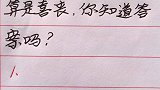 算是喜丧，你知道答
案吗？